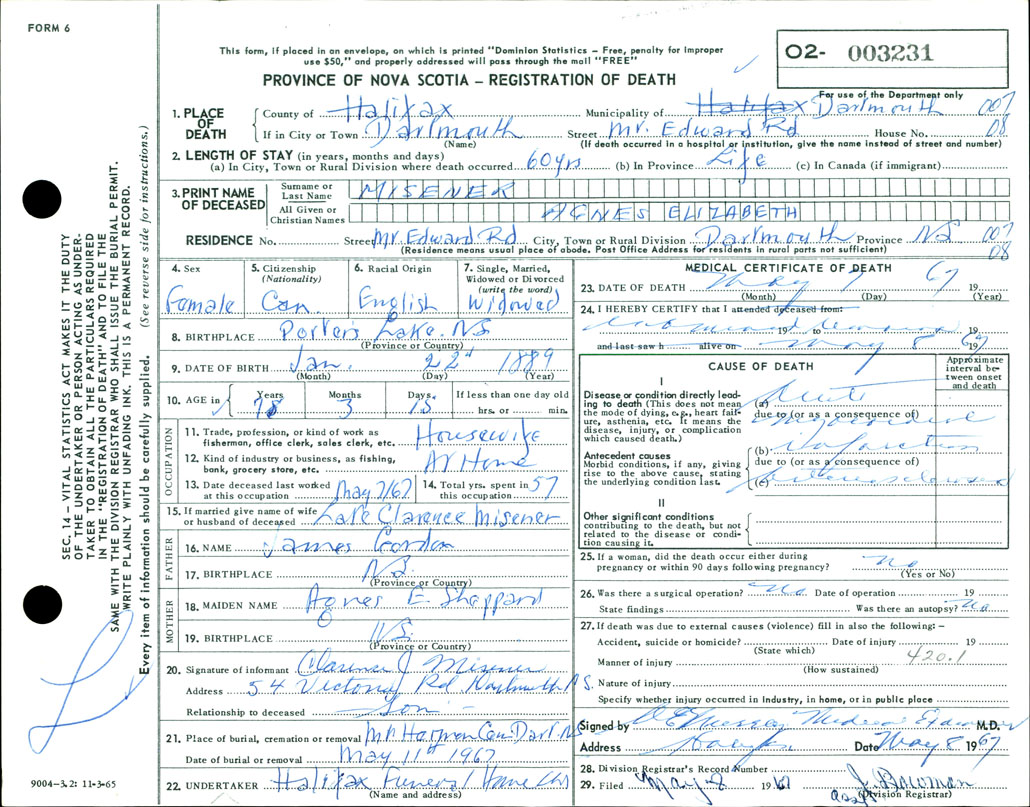 FORM 6
This form, if placed in an envelope, on which is printed "Dominion Statistics – Free, penalty for improper
use $50," and properly addressed will pass through the mail "FREE"
O2- 003231
PROVINCE OF NOVA SCOTIA – REGISTRATION OF DEATH
For use of the Department only
1. PLACE OF DEATH County of Halifax Municipality of Halifax Dartmouth 007
If in City or Town Dartmouth Street Mt. Edward Rd House No. 08
(Name) (If death occurred in a hospital or institution, give the name instead of street and number)
2. LENGTH OF STAY (in years, months and days)
(a) In City, Town or Rural Division where death occurred 60 yrs (b) In Province Life (c) In Canada (if immigrant)
3. PRINT NAME OF DECEASED Surname or Last Name MISENER
All Given or Christian Names AGNES ELIZABETH
RESIDENCE No. Street Mt. Edward Rd City, Town or Rural Division Dartmouth Province NS 007
(Residence means usual place of abode. Post Office Address for residents in rural parts not sufficient) 08
4. Sex Female
5. Citizenship (Nationality) Can.
6. Racial Origin English
7. Single, Married, Widowed or Divorced (write the word) Widowed
8. BIRTHPLACE Porters Lake. NS
(Province or Country)
9. DATE OF BIRTH Jan. 22nd 1889
(Month) (Day) (Year)
10. AGE in Years 78 Months 3 Days 15 If less than one day old hrs. or min.
OCCUPATION
11. Trade, profession, or kind of work as fisherman, office clerk, sales clerk, etc. Housewife
12. Kind of industry or business, as fishing, bank, grocery store, etc. At Home
13. Date deceased last worked at this occupation May 7/67 14. Total yrs. spent in this occupation 57
15. If married give name of wife or husband of deceased Late Clarence Misener
FATHER
16. NAME James Gordon
17. BIRTHPLACE N.S.
(Province or Country)
MOTHER
18. MAIDEN NAME Agnes E. Sheppard
19. BIRTHPLACE N.S.
(Province or Country)
20. Signature of informant Clarence J Misener
Address 54 Victoria Rd. Dartmouth N.S.
Relationship to deceased Son
21. Place of burial, cremation or removal Mt. Harmon Cem Dart NS
Date of burial or removal May 11th 1967
22. UNDERTAKER Halifax Funeral Home
(Name and address)
MEDICAL CERTIFICATE OF DEATH
23. DATE OF DEATH May 7 1967
(Month) (Day) (Year)
24. I HEREBY CERTIFY that I attended deceased from:
19 to 19
and last saw h alive on May 8 1967
CAUSE OF DEATH
Approximate interval between onset and death
I
Disease or condition directly leading to death (This does not mean the mode of dying, e.g., heart failure, asthenia, etc. It means the disease, injury, or complication which caused death.)
(a) Acute
due to (or as a consequence of) myocardial
Antecedent causes
Morbid conditions, if any, giving rise to the above cause, stating the underlying condition last.
(b) infarction
due to (or as a consequence of)
(c) arteriosclerosis
II
Other significant conditions
contributing to the death, but not related to the disease or condition causing it.
25. If a woman, did the death occur either during pregnancy or within 90 days following pregnancy? No
(Yes or No)
26. Was there a surgical operation? No Date of operation 19
State findings Was there an autopsy? No
27. If death was due to external causes (violence) fill in also the following: –
Accident, suicide or homicide? Date of injury 19
(State which)
Manner of injury 420.1
(How sustained)
Nature of injury
Specify whether injury occurred in Industry, in home, or in public place
Signed by Murray Medical M.D.
Address Halifax Date May 8 1967
28. Division Registrar's Record Number
29. Filed May 8 1967 J. Bowman
(Division Registrar)
SEC. 14 – VITAL STATISTICS ACT MAKES IT THE DUTY
OF THE UNDERTAKER OR PERSON ACTING AS UNDERTAKER
TO OBTAIN ALL THE PARTICULARS REQUIRED
IN THE "REGISTRATION OF DEATH" AND TO FILE THE
SAME WITH THE DIVISION REGISTRAR WHO SHALL ISSUE THE BURIAL PERMIT.
WRITE PLAINLY WITH UNFADING INK. THIS IS A PERMANENT RECORD.
Every item of information should be carefully supplied. (See reverse side for instructions.)
9004-3.2: 11-3-65